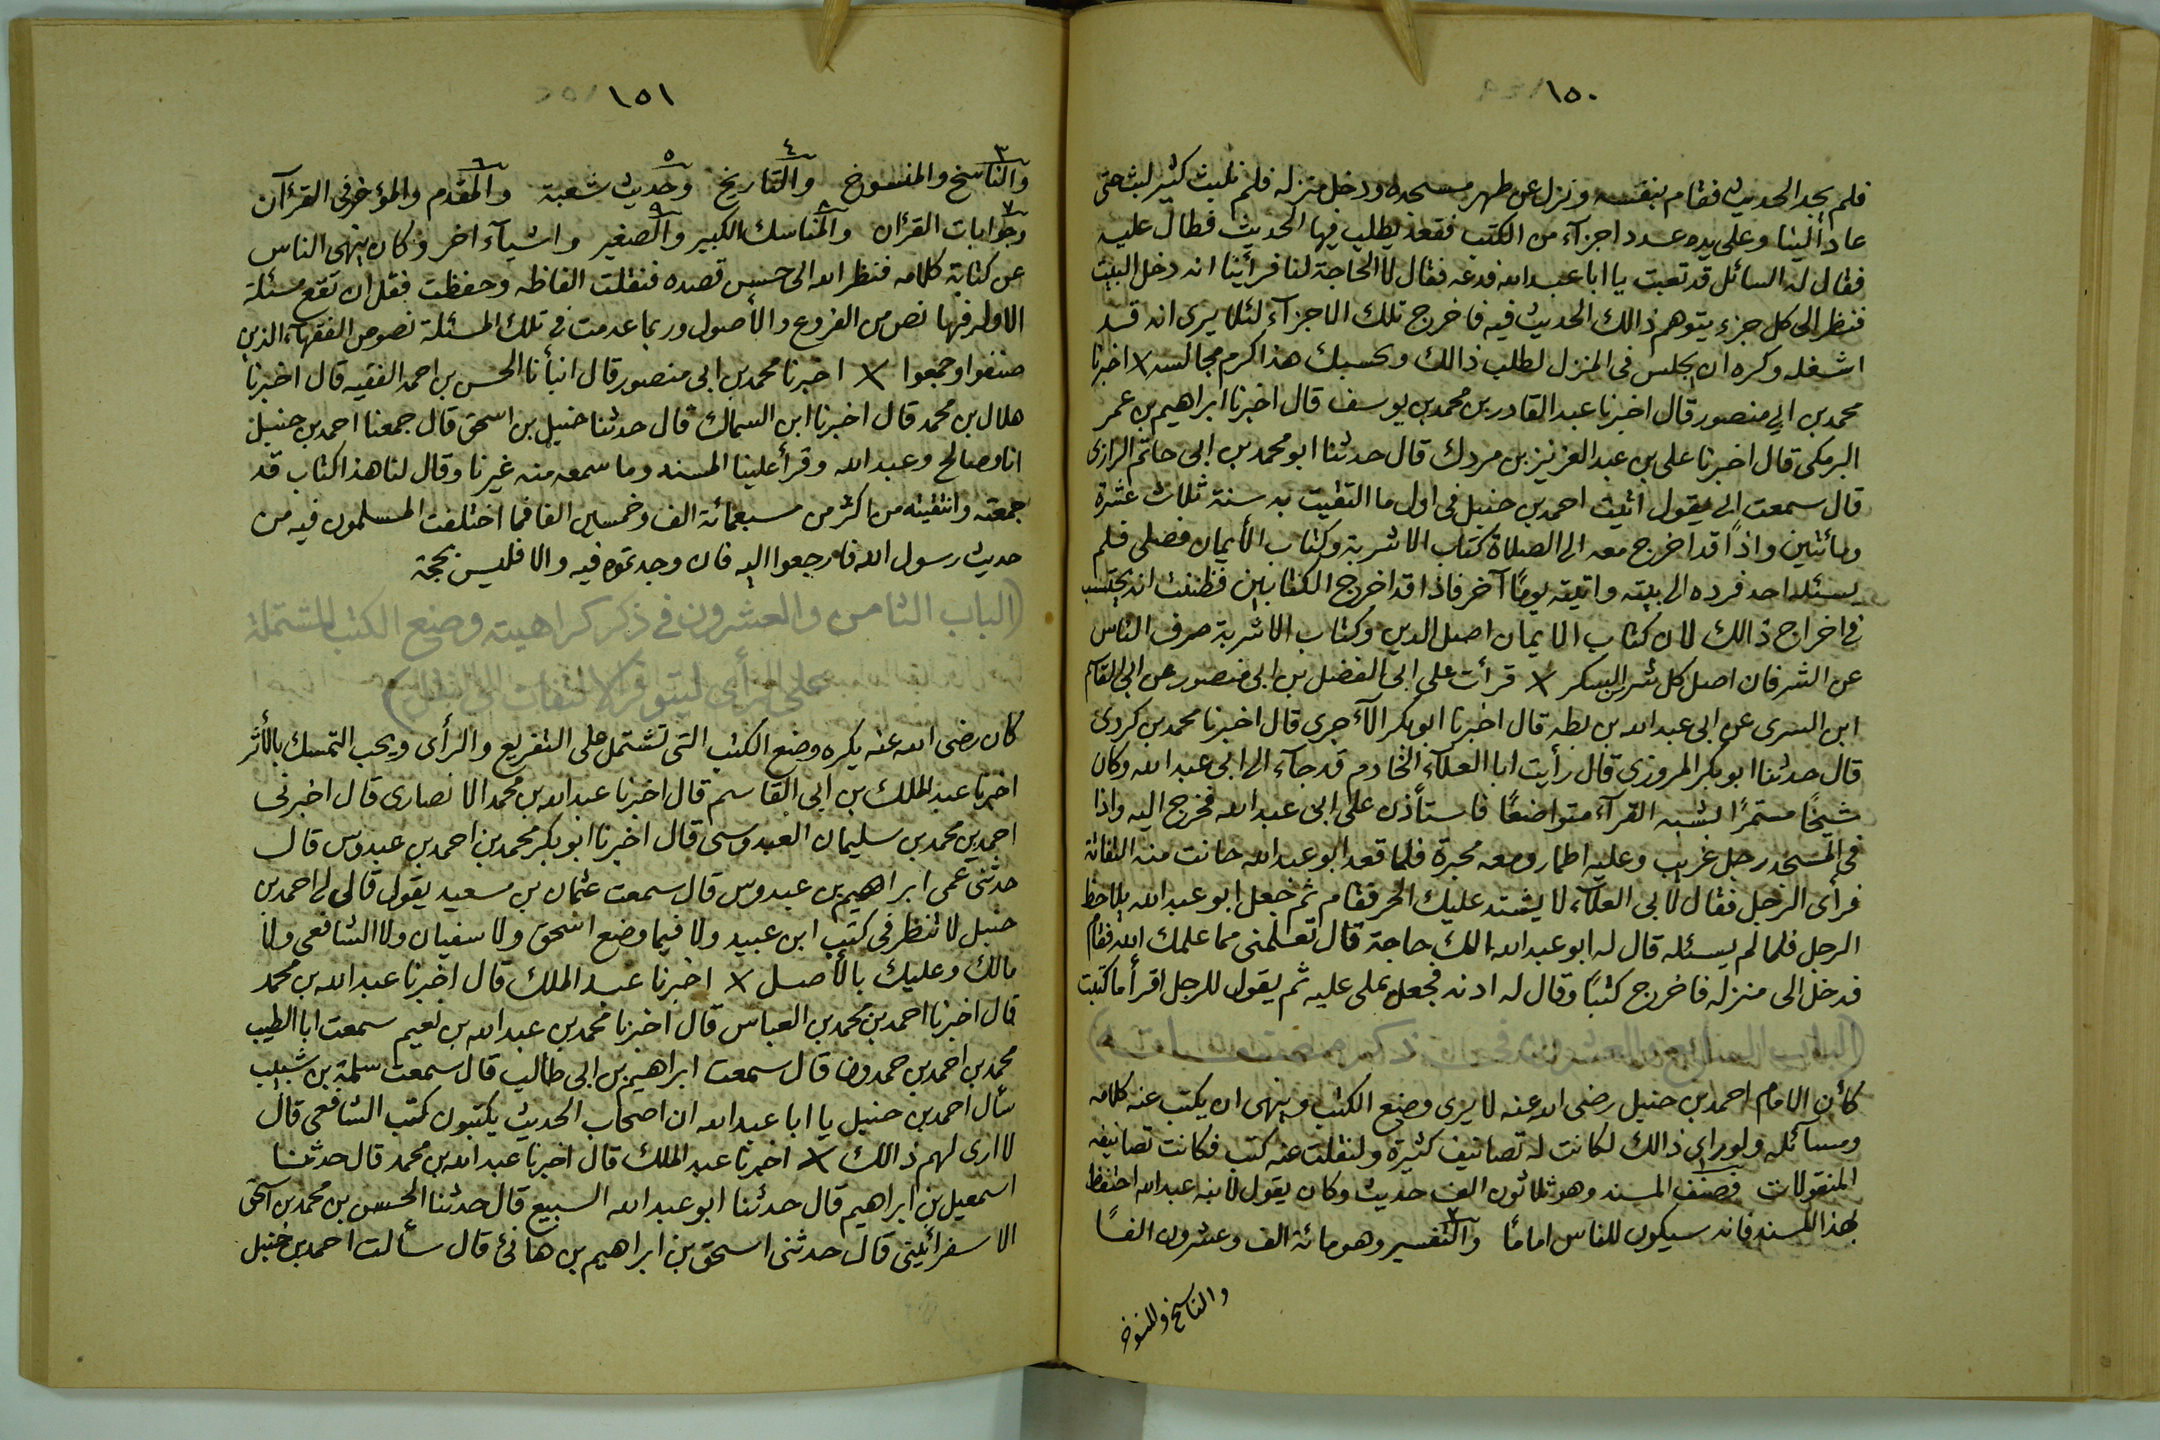 ١٥٠
فلم يجد الحديث فقام بنفسه ونزل عن ظهر مسجده ودخل منزله فلم نلبث كثير لبث حتى
عاد الينا وعلى يده عدد اجزآء من الكتب فقعد يطلب فيها الحديث فطال عليه
فقال له السائل قد تعبت يا ابا عبد الله فدعه فقال لا الحاجة لنا فرأينا انه دخل البيت
فنظر الى كل جزء يتوهم ذالك الحديث فيه فاخرج تلك الاجزآء لئلا يرى انه قد
اشغله وكره ان يجلس فى المنزل لطلب ذالك وبحسبك هذا كرم مجالسه x اخبرنا
محمد بن ابي منصور قال اخبرنا عبد القادر بن محمد بن يوسف قال اخبرنا ابراهيم بن عمر
البرمكى قال اخبرنا على بن عبد العزيز بن مردك قال حدثنا ابو محمد بن ابى حاتم الرازى
قال سمعت ابى يقول اتيت احمد بن حنبل فى اول ما التقيت به سنة ثلاث عشرة
ومائتين واذا قد اخرج معه الى الصلاة كتاب الاشربة وكتاب الأيمان فصلى فلم
يسئله احد فرده الى بيته واتيته يومًا آخر فاذا قد اخرج الكتابين فظننت انه يحتسب
فى اخراج ذالك لان كتاب الايمان اصل الدين وكتاب الاشربة صرف الناس
عن الشر فان اصل كل شر السكر x قرأت على ابى الفضل بن ابى منصور عن ابى القاسم
ابن البسرى عن ابى عبد الله بن بطه قال اخبرنا ابو بكر الآجرى قال اخبرنا محمد بن كردى
قال حدثنا ابو بكر المروزى قال رأيت ابا العلآء الخادم قد جآء الى ابى عبد الله وكان
شيخًا مستمرًا يشبه القرآء متواضعًا فاستأذن على ابى عبد الله فخرج اليه واذا
فى المسجد رجل غريب وعليه اطمار ومعه محبرة فلما قعد ابو عبد الله حانت منه التفاتة
فرأى الرجل فقال لابى العلآء لا يشتد عليك الحر فقام ثم جعل ابو عبد الله يلاحظ
الرجل فلما لم يسئله قال له ابو عبد الله الك حاجة قال تعلمنى مما علمك الله فقام
فدخل الى منزله فاخرج كتبًا وقال له ادنه فجعل يملى عليه ثم يقول للرجل اقرأ ما كتبت
(الباب السابع والعشرون فى ذكر مصنفاته)
كأن الامام احمد بن حنبل رضى الله عنه لا يرى وضع الكتب وينهى ان يكتب عنه كلامه
ومسآئله ولو راى ذالك لكانت له تصانيف كثيرة ولنقلت عنه كتب فكانت تصانيفه
المنقولات فصنف المسند وهو ثلاثون الف حديث وكان يقول لابنه عبد الله احتفظ
بهذا المسند فانه سيكون للناس امامًا ٢ والتفسير وهو مائة الف وعشرون الفًا
والناسخ والمنسوخ
١٥١
٣ والناسخ والمنسوخ ٤ والتاريخ ٥ وحديث شعبة ٦ والمقدم والمؤخر فى القرءآن
٧ وجوابات القرءان ٨ والمناسك الكبير ٩ والصغير واشيآء اخر وكان ينهى الناس
عن كتابة كلامه فنظر الله الى حسن قصده فنقلت الفاظه وحفظت فقل ان تقع مسئلة
الا وله فيها نص من الفروع والأصول وربما عدمت فى تلك المسئلة نصوص الفقهآء الذين
صنفوا وجمعوا x اخبرنا محمد بن ابى منصور قال انبأنا الحسن بن احمد الفقيه قال اخبرنا
هلال بن محمد قال اخبرنا ابن السماك قال حدثنا حنبل بن اسحق قال جمعنا احمد بن حنبل
انا وصالح وعبد الله وقرأ علينا المسند وما سمعه منه غيرنا وقال لنا هذا كتاب قد
جمعته وانتقيته من اكثر من سبعمائة الف وخمسين الفا فما اختلفت المسلمون فيه من
حديث رسول الله فارجعوا اليه فان وجدتموه فيه والا فليس بحجة
(الباب الثامن والعشرون فى ذكر كراهيته وضع الكتب المشتملة
على الرأى ليتوفر الالتفات الى النقل)
كان رضى الله عنه يكره وضع الكتب التى تشتمل على التفريع والرأى ويحب التمسك بالأثر
اخبرنا عبد الملك بن ابى القاسم قال اخبرنا عبد الله بن محمد الانصارى قال اخبرنى
احمد بن محمد بن سليمان العبدوسى قال اخبرنا ابو بكر محمد بن احمد بن عبدوس قال
حدثنى عمى ابراهيم بن عبدوس قال سمعت عثمان بن سعيد يقول قال لى احمد بن
حنبل لا تنظر فى كتب ابن عبيد ولا فيما وضع اسحق ولا سفيان ولا الشافعى ولا
مالك وعليك بالأصل x اخبرنا عبد الملك قال اخبرنا عبد الله بن محمد
قال اخبرنا احمد بن محمد بن العباس قال اخبرنا محمد بن عبد الله بن نعيم سمعت ابا الطيب
محمد بن احمد بن حمدون قال سمعت ابراهيم بن ابى طالب قال سمعت سلمة بن شبيب
سأل احمد بن حنبل يا ابا عبد الله ان اصحاب الحديث يكتبون كتب الشافعى قال
لا ارى لهم ذالك x اخبرنا عبد الملك قال اخبرنا عبد الله بن محمد قال حدثنا
اسمعيل بن ابراهيم قال حدثنا ابو عبد الله السبيع قال حدثنا الحسن بن محمد بن اسحق
الاسفرائينى قال حدثنى اسحق بن ابراهيم بن هانئ قال سألت احمد بن حنبل